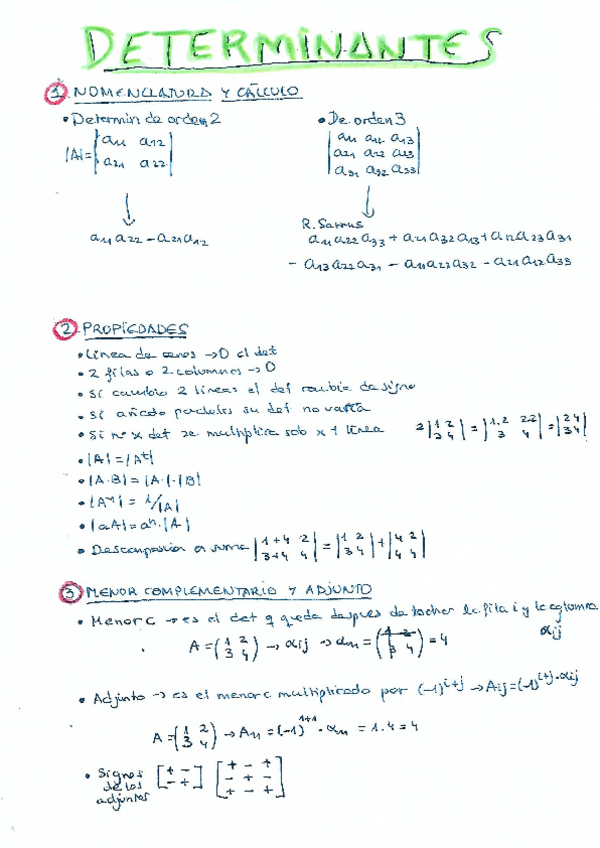 DETERMINANTES
1 NOMENCLATURA Y CÁLCULO
• Determin de orden 2
|A|= |a11 a12|
|a21 a22|
↓
a11 a22 - a21 a12
• De orden 3
|a11 a12 a13|
|a21 a22 a23|
|a31 a32 a33|
↓
R. Sarrus
a11 a22 a33 + a21 a32 a13 + a12 a23 a31
- a13 a22 a31 - a11 a23 a32 - a21 a12 a33
2 PROPIEDADES
• Línea de ceros → 0 el det
• 2 filas o 2 columnas → 0
• Si cambio 2 líneas el det cambia de signo
• Si añado su det no varía
• Si nº x det se multiplica solo x 1 línea 2|1 2| = |1·2 2·2| = |2 4|
|3 4| |3 4| |3 4|
• |A| = |A^t|
• |A·B| = |A|·|B|
• |A^-1| = 1/|A|
• |aA| = a^n·|A|
• suma |1+4 2| = |1 2| + |4 2|
|3+4 4| |3 4| |4 4|
3 MENOR COMPLEMENTARIO Y ADJUNTO
• Menor C → es el det q queda después de tachar la fila i y la columna
αij
A = (1 2) → αij → α11 = (1 2) = 4
(3 4) (3 4)
• Adjunto → es el menor c multiplicado por (-1)^i+j → Aij = (-1)^i+j · αij
A = (1 2) → A11 = (-1)^1+1 · α11 = 1·4 = 4
(3 4)
• Signos de los adjuntos
[+ -]
[- +]
[+ - +]
[- + -]
[+ - +]